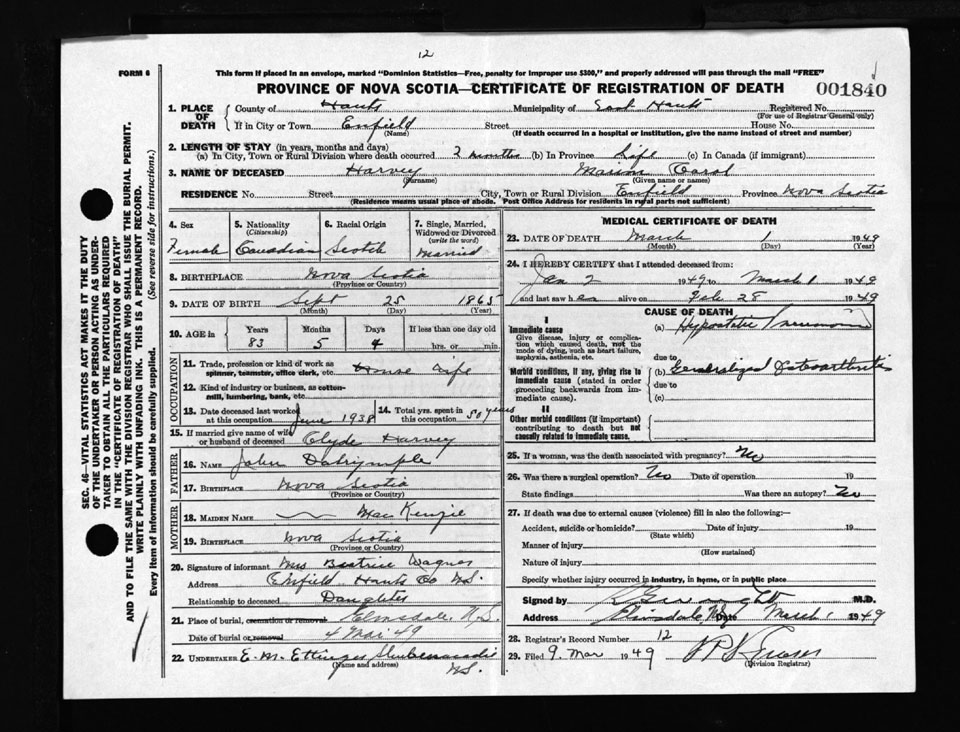 12
FORM 6
This form if placed in an envelope, marked "Dominion Statistics—Free, penalty for improper use $300," and properly addressed will pass through the mail "FREE"
PROVINCE OF NOVA SCOTIA—CERTIFICATE OF REGISTRATION OF DEATH 001840
SEC. 46—VITAL STATISTICS ACT MAKES IT THE DUTY
OF THE UNDERTAKER OR PERSON ACTING AS UNDER-
TAKER TO OBTAIN ALL THE PARTICULARS REQUIRED
IN THE "CERTIFICATE OF REGISTRATION OF DEATH"
AND TO FILE THE SAME WITH THE DIVISION REGISTRAR WHO SHALL ISSUE THE BURIAL PERMIT.
WRITE PLAINLY WITH UNFADING INK. THIS IS A PERMANENT RECORD.
Every item of information should be carefully supplied. (See reverse side for instructions.)
1. PLACE OF DEATH County of Hants Municipality of East Hants Registered No.
(For use of Registrar General only)
If in City or Town Enfield Street House No.
(Name) (If death occurred in a hospital or institution, give the name instead of street and number)
2. LENGTH OF STAY (in years, months and days)
(a) In City, Town or Rural Division where death occurred 2 months (b) In Province Life (c) In Canada (if immigrant)
3. NAME OF DECEASED Harvey Carol
(Surname) (Given name or names)
RESIDENCE No. Street City, Town or Rural Division Enfield Province Nova Scotia
(Residence means usual place of abode. Post Office Address for residents in rural parts not sufficient)
4. Sex 5. Nationality (Citizenship) 6. Racial Origin 7. Single, Married, Widowed or Divorced (write the word)
Female Canadian Scotch Married
8. BIRTHPLACE Nova Scotia
(Province or Country)
9. DATE OF BIRTH Sept 25 1865
(Month) (Day) (Year)
10. AGE in Years Months Days If less than one day old
83 5 4 hrs. or min.
OCCUPATION
11. Trade, profession or kind of work as
spinner, teamster, office clerk, etc. House Wife
12. Kind of industry or business, as cotton-
mill, lumbering, bank, etc.
13. Date deceased last worked at this occupation June 1938 14. Total yrs. spent in this occupation 50 years
15. If married give name of wife
or husband of deceased Clyde Harvey
FATHER
16. NAME John Dalrymple
17. BIRTHPLACE Nova Scotia
(Province or Country)
MOTHER
18. MAIDEN NAME MacKenzie
19. BIRTHPLACE Nova Scotia
(Province or Country)
20. Signature of informant Mrs Beatrice Wagner
Address Enfield Hants Co NS.
Relationship to deceased Daughter
21. Place of burial, cremation or removal Elmsdale, N.S.
Date of burial or removal 4 Mar 49
22. UNDERTAKER E. M. Ettinger Shubenacadie
(Name and address) NS.
MEDICAL CERTIFICATE OF DEATH
23. DATE OF DEATH March 1 1949
(Month) (Day) (Year)
24. I HEREBY CERTIFY that I attended deceased from:
Jan 2 1949 to March 1 1949
and last saw her alive on Feb. 28 1949
CAUSE OF DEATH
I
Immediate cause
Give disease, injury or complica-
tion which caused death, not the
mode of dying, such as heart failure,
asphyxia, asthenia, etc.
(a) Hypostatic Pneumonia
due to
Morbid conditions, if any, giving rise to
immediate cause (stated in order
proceeding backwards from im-
mediate cause).
(b) Generalized Osteoarthritis
due to
(c)
II
Other morbid conditions (if important)
contributing to death but not
causally related to immediate cause.
25. If a woman, was the death associated with pregnancy? No
26. Was there a surgical operation? No Date of operation 19
State findings Was there an autopsy? No
27. If death was due to external causes (violence) fill in also the following:—
Accident, suicide or homicide? Date of injury 19
(State which)
Manner of injury
(How sustained)
Nature of injury
Specify whether injury occurred in industry, in home, or in public place
Signed by M.D.
Address Elmsdale, NS Date March 1 1949
28. Registrar's Record Number 12
29. Filed 9. Mar 1949
(Division Registrar)